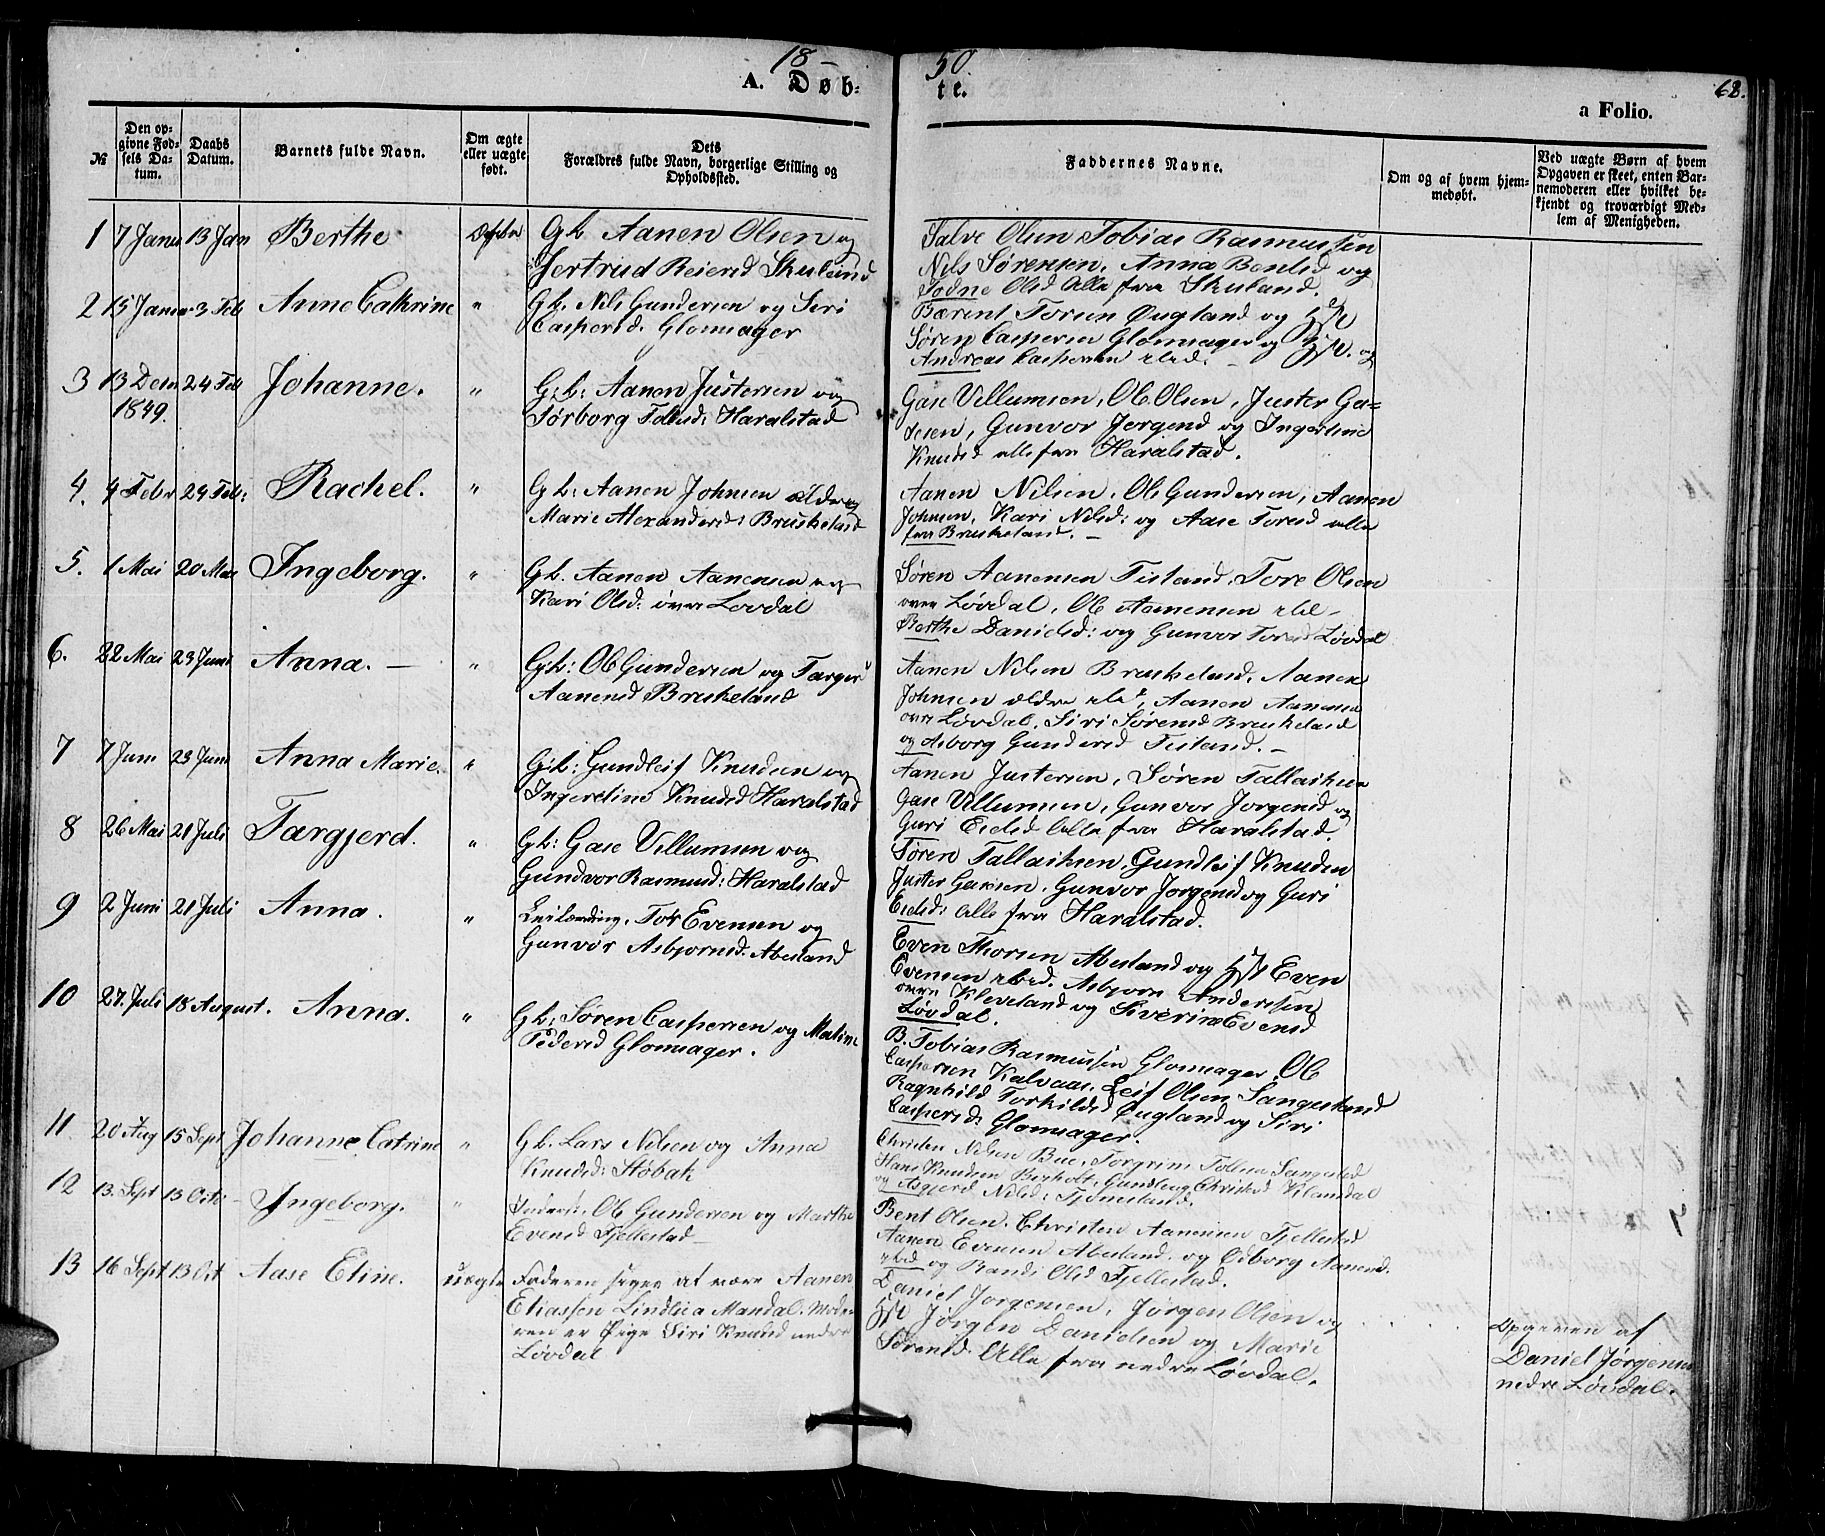 18 50.
A. Døb- te.
68.
a Folio.
№
Den opgivne Fødsels Datum.
Daabs Datum.
Barnets fulde Navn.
Om ægte eller uægte født.
Dets Forældres fulde Navn, borgerlige Stilling og Opholdssted.
Faddernes Navne.
Om og af hvem hjemmedøbt.
Ved uægte Børn af hvem Opgaven er skeet, enten Barnemoderen eller hvilket bekjendt og troværdigt Medlem af Menigheden.
1 7 Janu 13 Jan Berthe Gb. Aanen Olsen og
Gertrud Reiersd Skuland
Salve Olsen Tobias Rasmussen
Nils Sørensen, Anna Bentsd og
Alle fra Skuland.
2 15 Janu 3 Feb Anne Cathrine " Gb. Nils Gundersen og Siri
Caspersd: Glomsager
Bærent Torsen Øugland og Hst
Søren Caspersen Glomsager og Hst. og
Andreas Caspersen
3 13 Decm 1849. 24 Feb Johanne. " Gb: Aanen Justersen og
Sørborg Tallaksd: Haralstad
Gase Villumsen, Ole Olsen, Juster Ga-
sesen, Gunvor Jørgensd og Ingerline
Knudsd alle fra Haralstad.
4. 4 Febr 24 Feb: Rachel. " Gb: Aanen Johnsen ældre og
Marie Alexandersd: Bruskeland
Aanen Nilsen, Ole Gundersen, Aanen
Johnsen, Kari Nilsd: og Aase Toresd alle
fra Bruskeland. –
5. 1 Mai 20 Mai Ingeborg. " Gb. Aanen Aanensen og
Kari Olsd: øvre Løvdal
Søren Aanensen Tisland, Tore Olsen
øvre Løvdal, Ole Aanensen
Berthe Danielsd: og Gunvor Toresd Løvdal
6. 22 Mai 23 Juni Anna. – " Gb: Ole Gundersen og Targer
Aanensd Bruskeland
Aanen Nilsen Bruskeland, Aanen
Johnsen ældre, Aanen Aanensen
øvre Løvdal, Siri Sørensd Bruskeland
og Asborg Gundersd Tisland. –
7 7 Juni 23 Juni Anna Marie. " Gb: Gundleif Knudsen og
Ingerline Knudsd Haralstad
Aanen Justersen, Søren Tallaksen
Gase Villumsen, Gunvor Jørgensd og
Guri Eidsd Alle fra Haralstad
8 26 Mai 21 Juli Targjerd. " Gb: Gase Villumsen og
Gundvor Rasmusd: Haralstad
Søren Tallaksen, Gundleif Knudsen
Juster Gasesen, Gunvor Jørgensd og Guri
Eidsd: Alle fra Haralstad.
9 2 Juni 21 Juli Anna. " Leilænding, Tor Evensen og
Gunvor Asbjørnsd. Abesland
Even Thorsen Abesland og Hst Even
Evensen, Asbjørn Andersen
øvre Kleveland og Siverine Evensd
Løvdal.
10 27. Juli 18 August. Anna. " Gb: Søren Caspersen og Malene
Pedersd Glomsager.
B. Tobias Rasmussen Glomsager, Ole
Caspersen Kalvaas, Leif Olsen Sangesland
Ragnhild Torkildsd Øugland og Siri
Caspersd: Glomsager.
11 20 Aug 15 Sept Johanne Catrine " Gb. Lars Nilsen og Anna
Knudsd: Støbak
Christen Nilsen Bue, Torgrim Tollsen
Hans Knudsen Birkholt, Christensd
og Asgjerd Nilsd: Tjomesland.
12 13. Sept 13 Octr Ingeborg. " Inderst, Ole Gundersen og Marthe
Evensd Fjellestad
Bent Olsen, Christen Aanensen Fjellestad
Aanen Evensen Abesland, og Aanensd.
og Randi Olsd Fjellestad.
13 16 Sept 13 Oct Aase Eline. uægte Faderen siges at være Aanen
Eliassen Lindlia Mandal. Mode-
ren er Pige Siri Knudsd nedre
Løvdal
Daniel Jørgensen, Jørgen Olsen og
Hst Jørgen Danielsen og Marie
Sørensd. Alle fra nedre Løvdal.
Opgaven af
Daniel Jørgensen
nedre Løvdal.